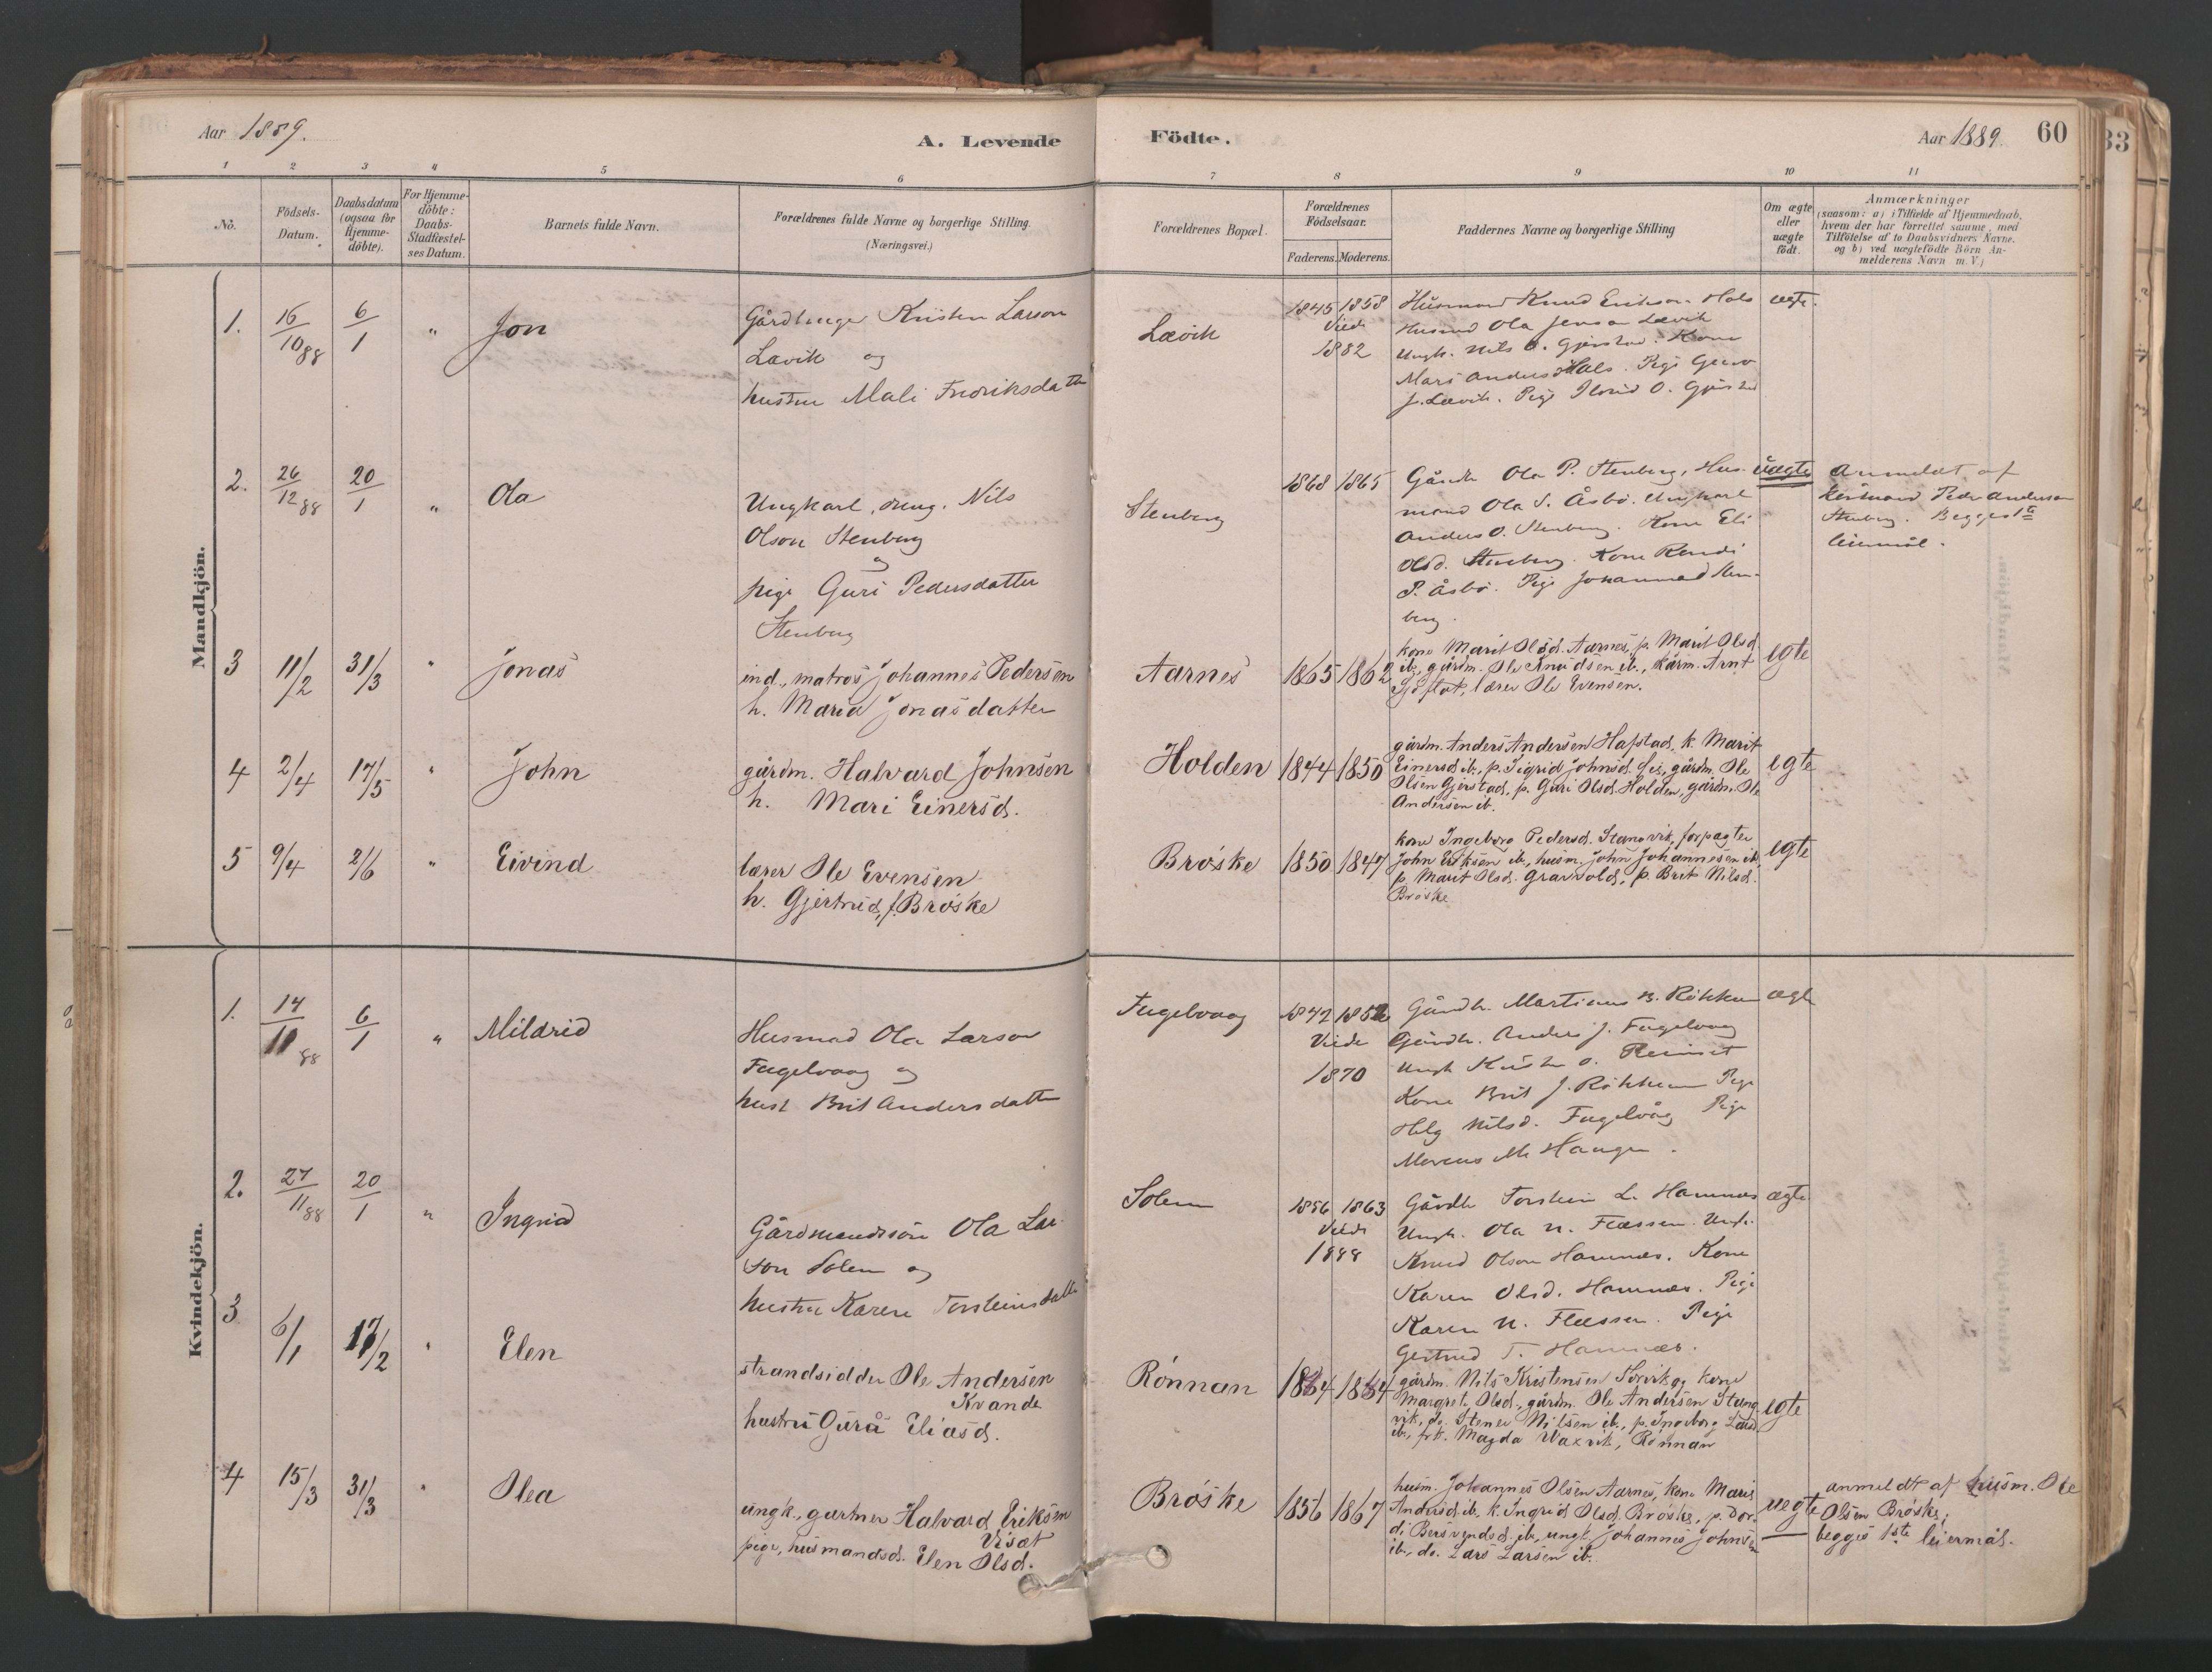 Aar 1889.
A. Levende
Födte.
Aar 1889. 60
33
1 2 3 4 5 6
7 8 9 10 11
No.
Födsels-
Datum.
Daabsdatum
(ogsaa for
Hjemme-
döbte).
For Hjemme-
döbte:
Daabs-
Stadfæstel-
ses Datum.
Barnets fulde Navn.
Forældrenes fulde Navne og borgerlige Stilling.
(Næringsvei.)
Forældrenes Bopæl.
Forældrenes
Födselsaar.
Faderens. Moderens.
Faddernes Navne og borgerlige Stilling
Om ægte
eller
uægte
födt.
Anmærkninger
(saasom: a) i Tilfælde af Hjemmedaab,
hvem der har forrettet samme, med
Tilföielse af to Daabsvidners Navne,
og b) ved uægtefödte Börn An-
melderens Navn m. V.)
Mandkjön.
1. 16/10 88 6/1 " Jon
Kristen Larson
Lævik og
hustru Mali Fredriksdatter
Lævik
1845 1858
Viede
1882
Husmand Knud Erikson Hals
Husmd Ola Jenson Lævik
Ungk. Nils O. Gjerstad. Kone
Mari Anders Hals. Pige
J. Lævik. Pige O.
ægte.
2. 26/12 88 20/1 " Ola
Ungkarl, Nils
Olson Stenberg
og
pige Guri Pedersdatter
Stenberg
Stenberg
1868 1865
Gårdb. Ola P. Stenberg, Hus-
mand Ola S. Åsbö. Ungkarl
Anders O. Stenberg. Kone Eli
Olsd. Stenberg. Kone Randi
P. Åsbö. Pige Sten-
berg.
uægte
Anmeldt af
Husmand Peder Anderson
Stenberg. Begges 1ste
leiermål.
3 11/2 31/3 " Jonas
ind., matros Johannes Pedersen
h. Maria Jonasdatter
Aarnes
1865 1862
kone Marit Olsd. Aarnes, p. Marit Olsd.
ib., gårdm. Ole Knudsen ib., Arnt
lærer Ole Evensen.
egte
4 2/4 17/5 " John
gårdm. Halvard Johnsen
h. Mari Einersd.
Holden
1844 1850
gårdm. Anders Andersen Hafstad, k. Marit
Einersd. ib., p. Sigrid Johnsd. gårdm. Ole
Olsen Gjerstad, p. Guri Olsd. Holden, gårdm. Ole
Andersen ib.
egte
5 9/4 2/6 " Eivind
lærer Ole Evensen
h. Gjertrud, f. Brøske
Brøske
1850 1847
kone Ingeborg Pedersd. Stangvik, forpagter
John Eriksen ib., husm. John Johannesen ib.
p. Marit Olsd. Gravvold, p. Brit Nilsd.
Brøske
egte
Kvindekjön.
1. 14/11 88 6/1 " Mildrid
Husmad Ola Larson
Fugelvaag og
hust Brit Andersdatter
Fugelvaag
1842 1852
Viede
1870
Gårdb. Martinus B. Røkkum
Gårdb. Anders J. Fugelvaag
Ungk O. Reinset
Kone Brit J. Røkkum Pige
Helg Nilsd. Fugelvåg Pige
M. Haugen.
ægte
2. 27/11 88 20/1 " Ingrid
Gårdmandssön Ola Lar-
son Solem og
hustru Karen Torsteinsdatter
Solem
1856 1863
Viede
1888
Gårdb Torstein L. Hamnes
Ungk. Ola N. Flessen. Ungk.
Knud Olson Hamnes. Kone
Karen Olsd. Hamnes. Pige
Karen N. Flessen. Pige
Gertrud T. Hamnes.
ægte
3 6/1 17/2 " Elen
strandsidder Ole Andersen
Kvande
hustru Gurå Eliasd.
Rönnan
1834 1834
gårdm. Nils Kristensen Sørvik og kone
Margrete Olsd., gårdm. Ole Andersen Stang-
vik, do. Stener Nilsen ib., p. Ingeborg Larsd.
ib., frk. Magda Waxvik, Rönnan
egte
4 15/3 31/3 " Olea
ungk., gartner Halvard Eriksen
Visæt
pige, husmandsd. Elen Olsd.
Brøske
1856 1867
husm. Johannes Olsen Aarnes, kone Marit
Andersd. ib., k. Ingrid Olsd. Brøske, p. Dor-
di Bersvendsd. ib., ungk. Johannes Johnsen
ib., do. Lars Larsen ib.
uegte
anmeldt af husm. Ole
Olsen Brøske;
begges 1ste leiermål.